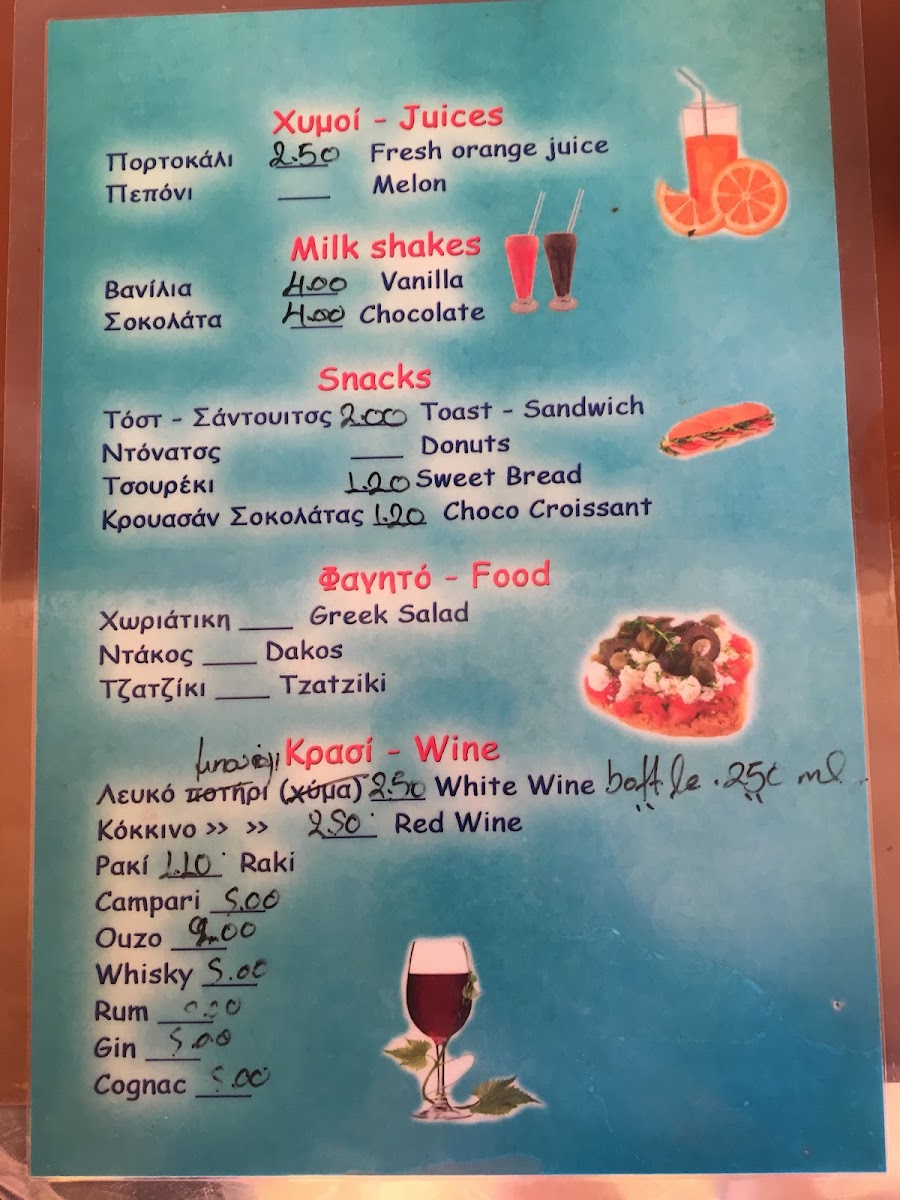 Χυμοί - Juices
Πορτοκάλι 2.50 Fresh orange juice
Πεπόνι ___ Melon
Milk shakes
Βανίλια 4.00 Vanilla
Σοκολάτα 4.00 Chocolate
Snacks
Τόστ - Σάντουιτσς 2.00 Toast - Sandwich
Ντόνατσς ___ Donuts
Τσουρέκι 1.20 Sweet Bread
Κρουασάν Σοκολάτας 1.20 Choco Croissant
Φαγητό - Food
Χωριάτικη ___ Greek Salad
Ντάκος ___ Dakos
Τζατζίκι ___ Tzatziki
Κρασί - Wine
Λευκό ποτήρι (χύμα) 2.50 White Wine bottle . 250 ml
Κόκκινο >> >> 2.50 Red Wine
Ρακί 1.10 Raki
Campari 5.00
Ouzo
Whisky 5.00
Rum
Gin 5.00
Cognac 5.00